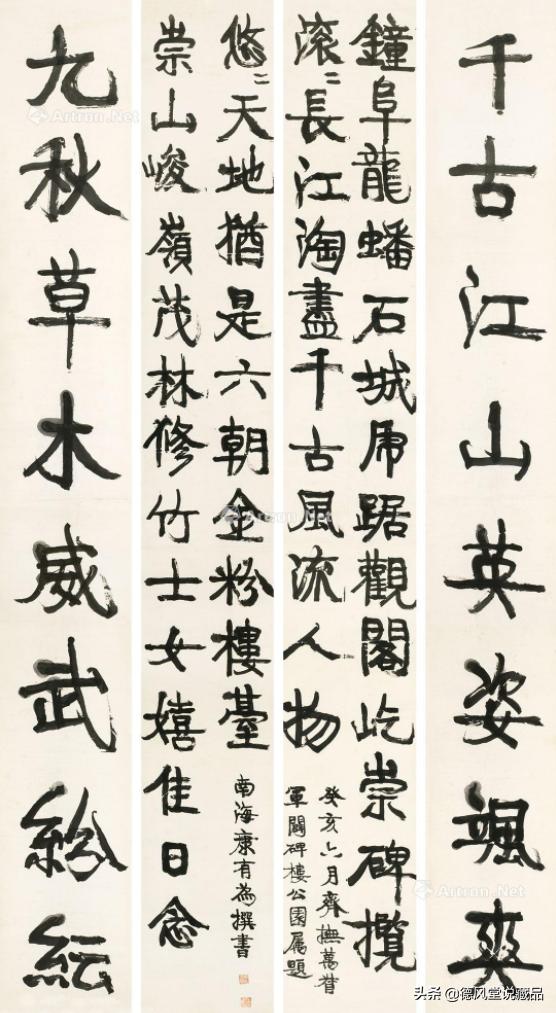 千古江山英姿颯爽
鐘阜龍蟠石城虎踞觀閣屹崇碑攬
滚〻長江淘盡千古風流人物
癸亥六月齊撫萬督
軍闢碑樓公園屬題
悠〻天地猶是六朝金粉樓臺
南海康有為撰書
崇山峻嶺茂林修竹士女嬉佳日念
九秋草木威武紛紜
Artron.Net
Artron.Net
Artron.Net
Artron.Net
头条 @德风堂说藏品